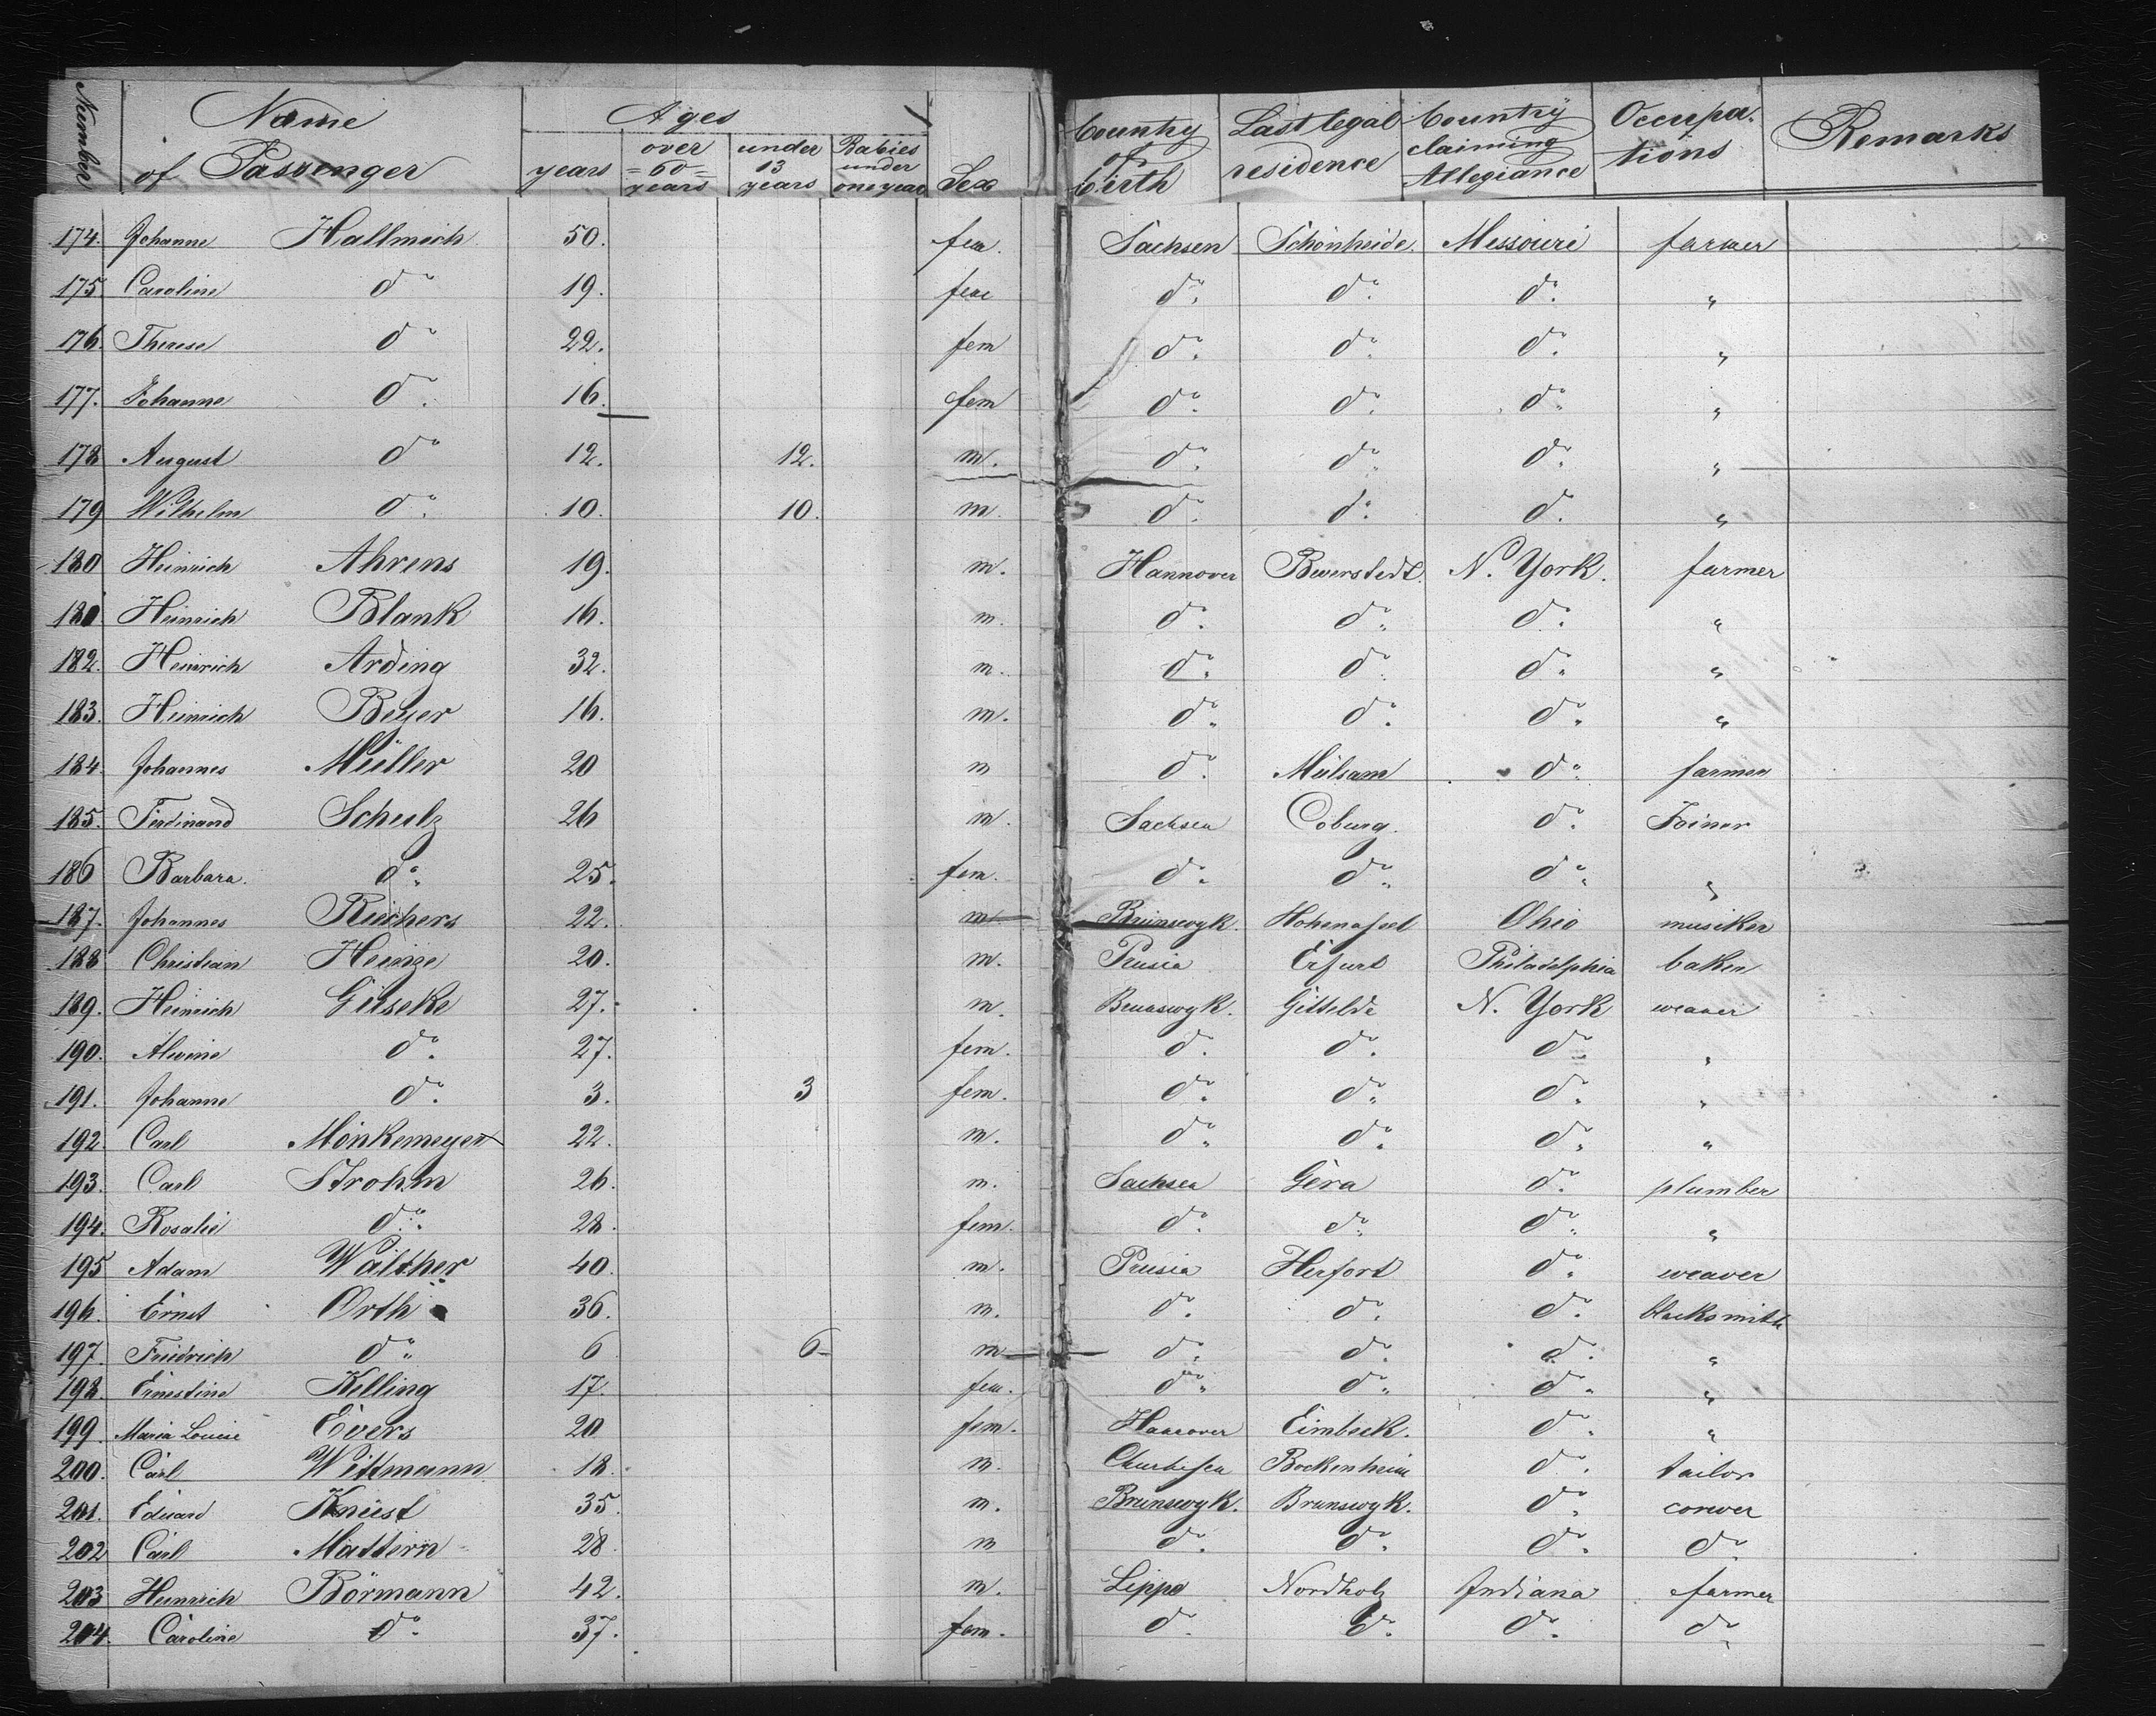 Number Name of Passenger Ages years over =60= years under 13 years Babies under one year Sex Country of birth Last legal residence Country claiming Allegiance Occupations Remarks
174. Johanne Hallmich 50. fem. Sachsen Schönheide. Missouri farmer
175. Caroline do 19. fem do. do. do. "
176. Therese do 22. fem do. do. do. "
177. Johanne do. 16. fem do. do. do. "
178 August do 12. 12. m. do. do. do. "
179 Wilhelm do. 10. 10. m. do. do. do. "
180 Heinrich Ahrens 19. m. Hannover Beverstedt. N. York. farmer
181 Heinrich Blank 16. m. do. do. do. "
182. Heinrich Arding 32. m. do. do. do. "
183. Heinrich Beyer 16. m. do. do. do. "
184. Johannes Müller 20 m do. Mulsam do. farmer
185. Ferdinand Schulz 26 m. Sachsen Coburg. do. Joiner
186 Barbara. do. 25. fem. do. do. do. "
187. Johannes Riechers 22. m Brunswyk. Hohenassel Ohio musiker
188 Christian Heinze 20. m. Prusia Erfurt Philadelphia baker
189. Heinrich Giiseke 27. m. Brunswyk. Gittelde N. York weaver
190. Alwine do. 27. fem. do. do. do. "
191. Johanne do. 3. 3 fem. do. do. do. "
192. Carl Mönkemeyer 22. m. do. do. do. "
193. Carl Strohm 26. m. Sachsen Gera do. plumber
194. Rosalie do. 28. fem. do. do. do. "
195 Adam Walther 40. m. Prusia Herfort do. weaver
196. Ernst Orth 36. m. do. do. do. blacksmith
197. Friedrich do. 6 6 m do. do. do. "
198. Ernestine Kelling 17. fem. do. do. do. "
199. Maria Louise Evers 20 fem. Hannover Eimbeck. do. "
200. Carl Wittmann 18. m. Churhesen Bockenheim do. tailor
201. Eduard Knüst 35. m. Brunswyk. Brunswyk. do. corver
202 Carl Mattern 28. m do. do. do. do.
203 Heinrich Börmann 42. m. Lippe Nordholz Indiana farmer
204. Caroline do. 37. fem. do. do. do. do.